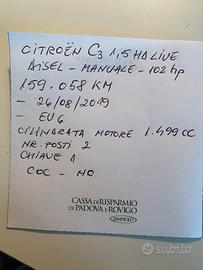 CITROËN C3 1,5 HD LIVE
DISEL - MANUALE - 102 hp
159.058 KM
- 26/08/2019
- EU6
CILINDRATA MOTORE 1.499 CC
NR. POSTI 2
CHIAVE 1
COC - NO
CASSA DI RISPARMIO
DI PADOVA E ROVIGO
subito